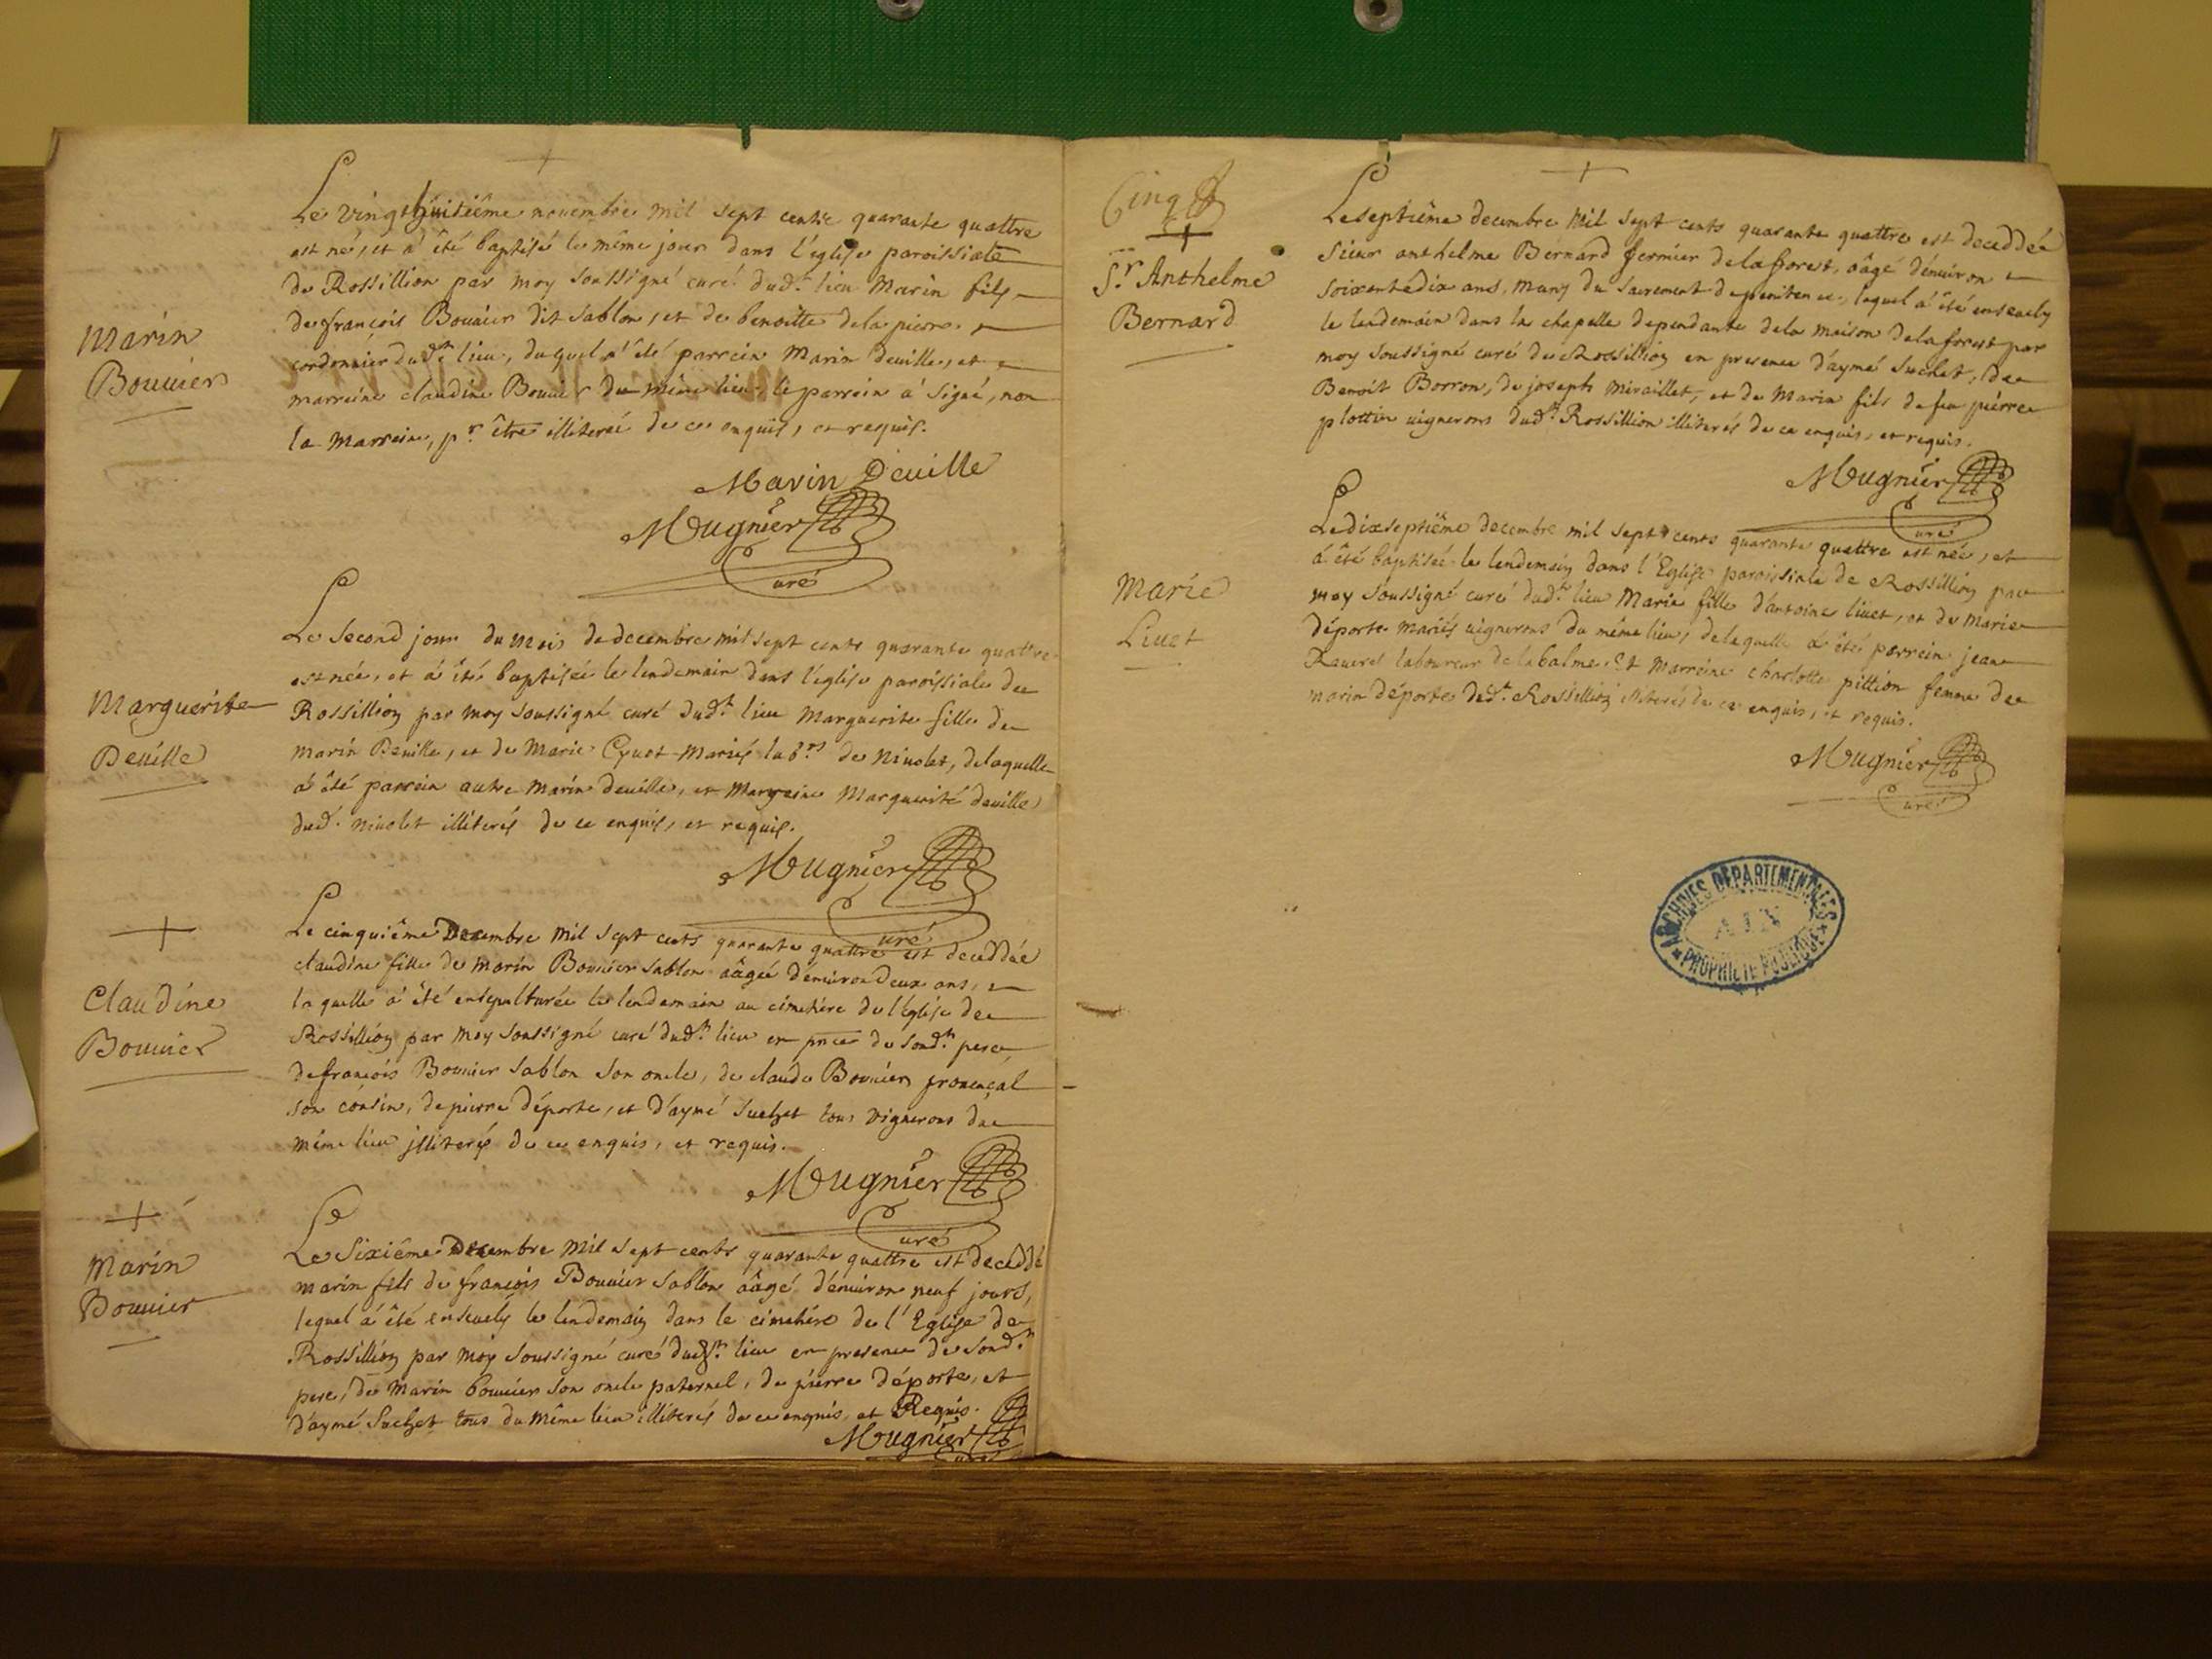 Le vingthuitiême novembre mil sept cents quarante quattre
est né, et a' été baptisé le même jour dans l'église paroissiale
de Rossillion par moy soussigné curé dud.t lieu Marin fils
de françois Bouuier dit sablon, et de benoitte dela pierre
Marin
cordonnier dud.t lieu, duquel a' été parrein Marin deuille, et
Bouuier
marreine claudine Bouuier du même lieu le parrein a' signé, non
la marreine, p.r être illiteré de ce enquis, et requis.
Marin Deuille
Mugnier
curé
Le second jour du mois de decembre mil sept cents quarante quattre
est née, et a' été baptisée le lendemain dans l'église paroissiale de
Marguerite
Rossillion par moy soussigné curé dud.t lieu Marguerite fille de
Deuille
marin Deuille, et de Marie Cyuet mariés lab.rs de niuolet, de laquelle
a' été parrein autre marin deuille, et marreine Marguerite deuille
dud. niuolet illiterés de ce enquis, et requis.
Mugnier
curé
Le cinquiême Decembre mil sept cents quarante quattre est deceddée
claudine fille de marin Bouuier sablon aâgée d'enuiron deux ans,
Claudine
laquelle a' été ensepulturée le lendemain au cimetiére de l'Eglise de
Bouuier
Rossillion par moy soussigné curé dud.t lieu en pnce de sond.t pere,
de françois Bouuier sablon son oncle, de claude Bouuier prouençal
son cousin, de pierre déporte, et d'aymé suchet tous vignerons du
même lieu illiterés de ce enquis, et requis.
Mugnier
curé
Le Sixiême Decembre mil sept cents quarante quattre est deceddé
Marin
marin fils de françois Bouuier sablon aâgé d'enuiron neuf jours,
Bouuier
lequel a' été enseuely le lendemain dans le cimetiére de l'Eglise de
Rossillion par moy soussigné curé dud.t lieu en presence de sond.t
pere, de marin bouuier son oncle paternel, de pierre déporte, et
d'aymé Suchet tous du même lieu illiterés de ce enquis, et Requis.
Mugnier
curé
Cinq
Le septiême decembre mil sept cents quarante quattre est deceddée
S.r Anthelme
Sieur anthelme Bernard fermier dela forest, aâgé d'enuiron
Bernard
soixante dix ans, muny du sacrement de penitence, lequel a' été enseuely
le lendemain dans la chapelle dependante dela maison dela forest par
moy soussigné curé de Rossillion en presence d'aymé suchet, de
Benoit Borron, de joseph miraillet, et de Marin fils de feu pierre
plottin uignerons dud.t Rossillion illiterés de ce enquis, et requis.
Mugnier
curé
Le dixseptiême decembre mil sept cents quarante quattre est née, et
a' été baptisée le lendemain dans l'Eglise paroissiale de Rossillion par
Marie
moy soussigné curé dud.t lieu Marie fille d'antoine liuet, et de marie
Liuet
déporte mariés uignerons du même lieu, de laquelle a' été parrein jean
Rauerel laboureur de la balme. Et marreine charlotte pittion femme de
marin déporte dud.t Rossillion illiterés de ce enquis, et requis.
Mugnier
curé
ARCHIVES DÉPARTEMENTALES
AIN
PROPRIÉTÉ PUBLIQUE